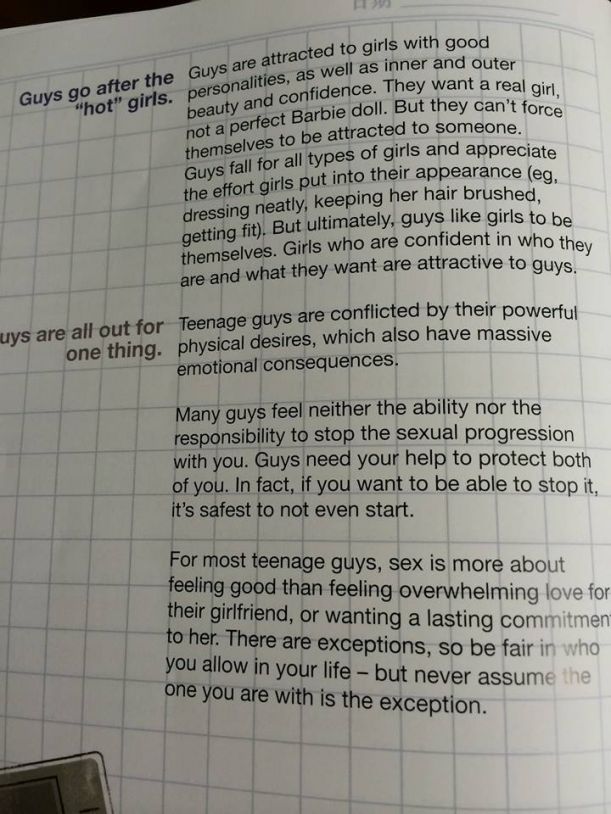 日期
Guys go after the
"hot" girls.
Guys are attracted to girls with good
personalities, as well as inner and outer
beauty and confidence. They want a real girl,
not a perfect Barbie doll. But they can't force
themselves to be attracted to someone.
Guys fall for all types of girls and appreciate
the effort girls put into their appearance (eg,
dressing neatly, keeping her hair brushed,
getting fit). But ultimately, guys like girls to be
themselves. Girls who are confident in who they
are and what they want are attractive to guys.
uys are all out for
one thing.
Teenage guys are conflicted by their powerful
physical desires, which also have massive
emotional consequences.
Many guys feel neither the ability nor the
responsibility to stop the sexual progression
with you. Guys need your help to protect both
of you. In fact, if you want to be able to stop it,
it's safest to not even start.
For most teenage guys, sex is more about
feeling good than feeling overwhelming love for
their girlfriend, or wanting a lasting commitmen
to her. There are exceptions, so be fair in who
you allow in your life – but never assume the
one you are with is the exception.